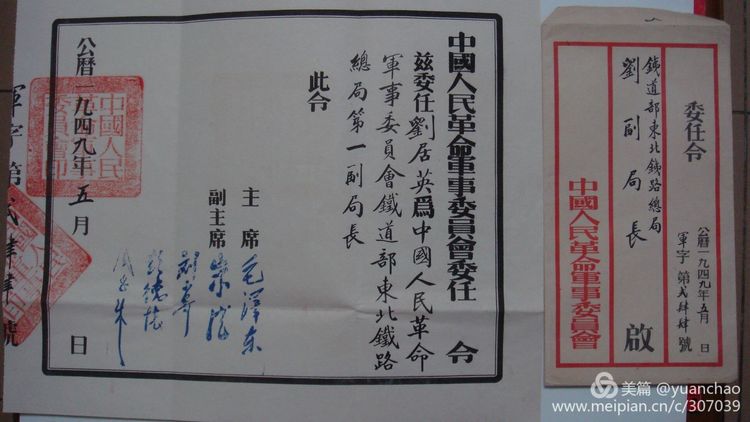 中國人民革命軍事委員會委任令
茲委任劉居英爲中國人民革命
軍事委員會鐵道部東北鐵路
總局第一副局長
此令
主席 毛澤东
副主席 朱德
劉少奇
彭德怀
公曆一九四九年五月 日
中國人民革命軍事委員會印
軍字第貳肆肆號
委任令
公曆一九四九年五月 日
軍字第貳肆肆號
鐵道部東北鐵路總局
劉副局長 啟
中國人民革命軍事委員會
美篇 @yuanchao
www.meipian.cn/c/307039